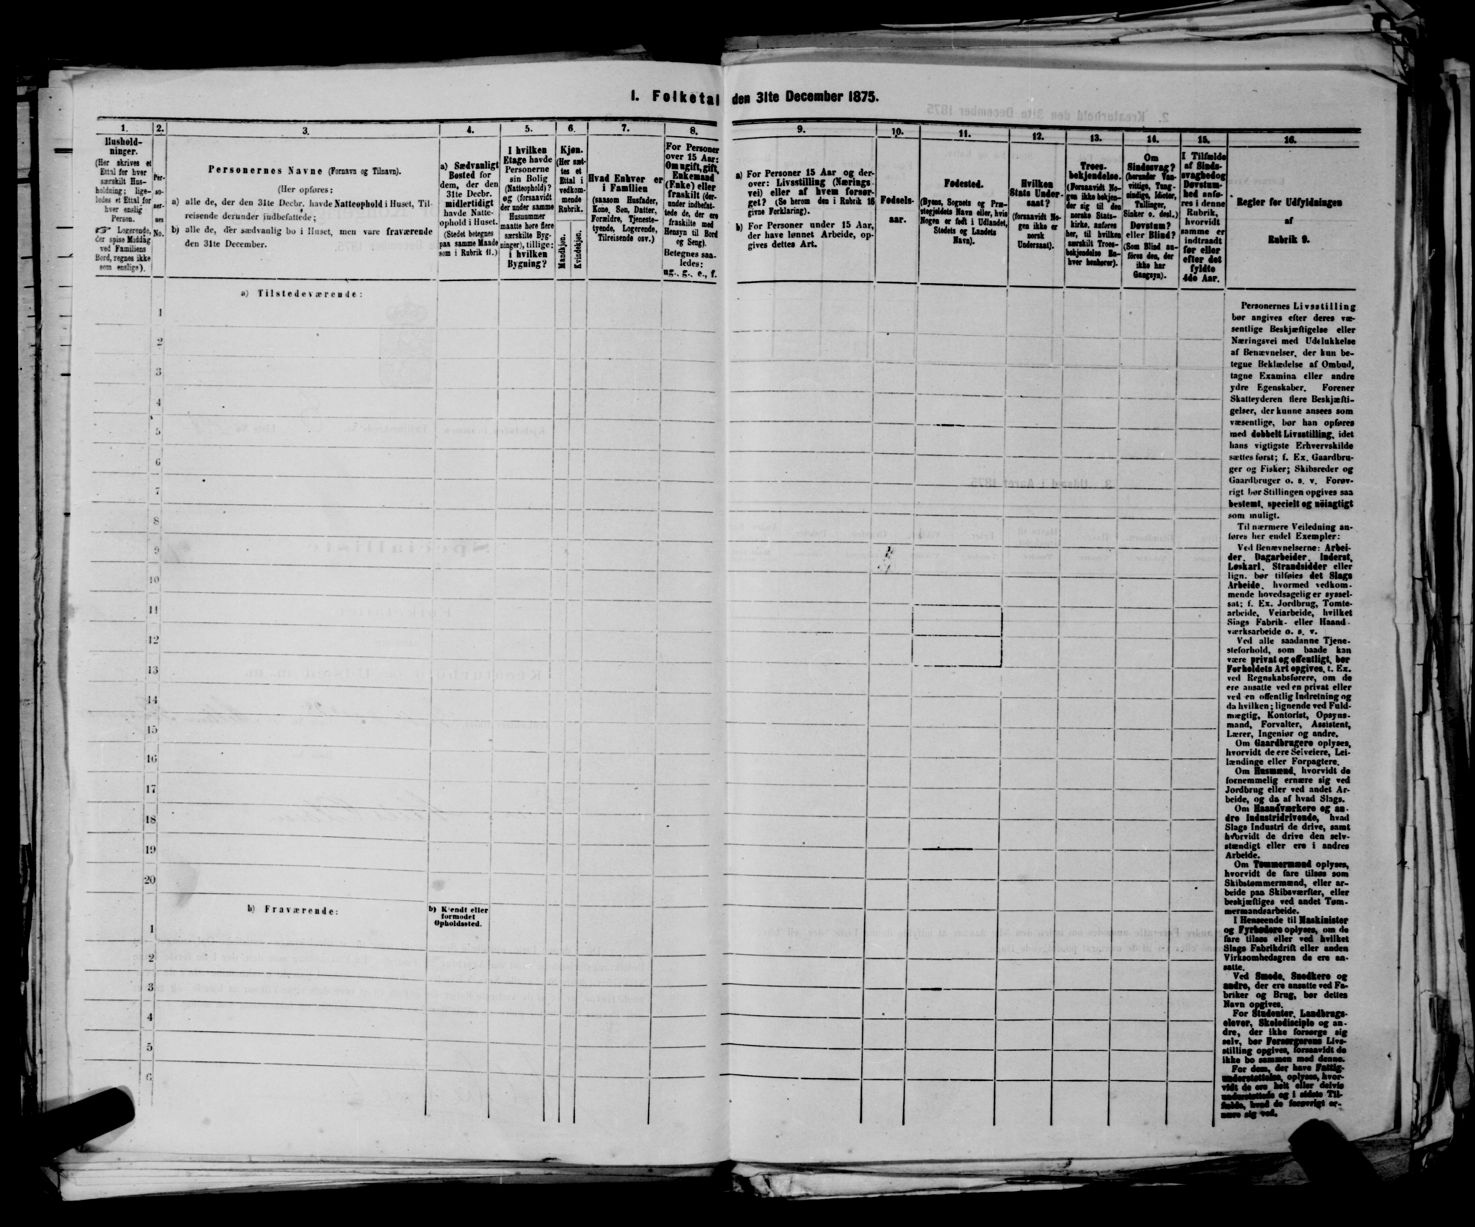 I. Folketal den 31te December 1875.
1.
Hushold-
ninger.
(Her skrives et
Ettal for hver
særskilt Hus-
holdning; lige-
ledes et Ettal for
hver enslig
Person.
☞ Logerende,
der spise Middag
ved Familiens
Bord, regnes ikke
som enslige).
2.
Per-
so-
ner-
nes
No.
3.
Personernes Navne (Fornavn og Tilnavn).
(Her opføres:
a) alle de, der den 31te Decbr. havde Natteophold i Huset, Til-
reisende derunder indbefattede;
b) alle de, der sædvanlig bo i Huset, men vare fraværende
den 31te December.
4.
a) Sædvanligt
Bosted for
dem, der den
31te Decbr.
midlertidigt
havde Natte-
ophold i Huset.
(Stedet betegnes
paa samme Maade
som i Rubrik 11.)
5.
I hvilken
Etage havde
Personerne
sin Bolig
(Natteophold)?
og (forsaavidt
der under samme
Husnummer
maatte høre flere
særskilte Byg-
ninger), tillige:
i hvilken
Bygning?
6.
Kjøn.
(Her sæt-
tes et
Ettal i
vedkom-
mende
Rubrik.
Mandkjøn.
Kvindekjøn.
7.
Hvad Enhver er
i Familien
(saasom Husfader,
Kone, Søn, Datter,
Forældre, Tjeneste-
tyende, Logerende,
Tilreisende osv.)
8.
For Personer
over 15 Aar:
Om ugift, gift,
Enkemand
(Enke) eller
fraskilt (der-
under indbefat-
tede de, der ere
fraskilte med
Hensyn til Bord
og Seng).
Betegnes saa-
ledes:
ug., g., e., f.
9.
a) For Personer 15 Aar og der-
over: Livsstilling (Nærings-
vei) eller af hvem forsør-
get? (Se herom den i Rubrik 16
givne Forklaring).
b) For Personer under 15 Aar,
der have lønnet Arbeide, op-
gives dettes Art.
10.
Fødsels-
aar.
11.
Fødested.
(Byens, Sognets og Præ-
stegjeldets Navn eller, hvis
Nogen er født i Udlandet,
Stedets og Landets
Navn).
12.
Hvilken
Stats Under-
saat?
(forsaavidt No-
gen ikke er
norsk
Undersaat).
13.
Troes-
bekjendelse.
(Forsaavidt No-
gen ikke bekjen-
der sig til den
norske Stats-
kirke, anføres
her, til hvilken
særskilt Troes-
bekjendelse En-
hver henhører).
14.
Om
Sindssvag?
(herunder Van-
vittige, Tung-
sindige, Idioter,
Tullinger,
Sinker o. desl.)
Døvstum?
eller Blind?
(Som Blind an-
føres den, der
ikke har
Gangsyn).
15.
I Tilfælde
af Sinds-
svaghed og
Døvstum-
hed anfø-
res i denne
Rubrik,
hvorvidt
samme er
indtraadt
før eller
efter det
fyldte
4de Aar.
16.
Regler for Udfyldningen
af
Rubrik 9.
a) Tilstedeværende:
1
2
3
4
5
6
7
8
9
10
11
12
13
14
15
16
17
18
19
20
b) Fraværende:
b) Kjendt eller
formodet
Opholdssted.
1
2
3
4
5
6
Personernes Livsstilling
bør angives efter deres væ-
sentlige Beskjæftigelse eller
Næringsvei med Udelukkelse
af Benævnelser, der kun be-
tegne Beklædelse af Ombud,
tagne Examina eller andre
ydre Egenskaber. Forener
Skatteyderen flere Beskjæfti-
gelser, der kunne ansees som
væsentlige, bør han opføres
med dobbelt Livsstilling, idet
hans vigtigste Erhvervskilde
sættes først; f. Ex. Gaardbru-
ger og Fisker; Skibsreder og
Gaardbruger o. s. v. Forøv-
rigt bør Stillingen opgives saa
bestemt, specielt og nöiagtigt
som muligt.
Til nærmere Veiledning an-
føres her endel Exempler:
Ved Benævnelserne: Arbei-
der, Dagarbeider, Inderst,
Løskarl, Strandsidder eller
lign. bør tilføies det Slags
Arbeide, hvormed vedkom-
mende hovedsagelig er syssel-
sat; f. Ex. Jordbrug, Tomte-
arbeide, Veiarbeide, hvilket
Slags Fabrik- eller Haand-
værksarbeide o. s. v.
Ved alle saadanne Tjene-
steforhold, som baade kan
være privat og offentligt, bør
Forholdets Art opgives, f. Ex.
ved Regnskabsførere, om de
ere ansatte ved en privat eller
ved en offentlig Indretning og
da hvilken; lignende ved Fuld-
mægtig, Kontorist, Opsyns-
mand, Forvalter, Assistent,
Lærer, Ingeniør og andre.
Om Gaardbrugere oplyses,
hvorvidt de ere Selveiere, Lei-
lændinge eller Forpagtere.
Om Husmænd, hvorvidt de
fornemmelig ernære sig ved
Jordbrug eller ved andet Ar-
beide, og da af hvad Slags.
Om Haandværkere og an-
dre Industridrivende, hvad
Slags Industri de drive, samt
hvorvidt de drive den selv-
stændigt eller ere i andres
Arbeide.
Om Tømmermænd oplyses,
hvorvidt de fare tilsøs som
Skibstømmermænd, eller ar-
beide paa Skibsværfter, eller
beskjæftiges ved andet Tøm-
mermandsarbeide.
I Henseende til Maskinister
og Fyrbødere oplyses, om de
fare tilsøs eller ved hvilket
Slags Fabrikdrift eller anden
Virksomhedsgren de ere an-
satte.
Ved Smede, Snedkere og
andre, der ere ansatte ved Fa-
briker og Brug, bør dettes
Navn opgives.
For Studenter, Landbrugs-
elever, Skoledisciple og an-
dre, der ikke forsørge sig
selv, bør Forsørgerens Livs-
stilling opgives, forsaavidt de
ikke bo sammen med denne.
For dem, der have Fattig-
understøttelse, oplyses, hvor-
vidt de ere helt eller delvis
understøttede og i sidste Til-
fælde, hvad de forøvrigt er-
nære sig ved.